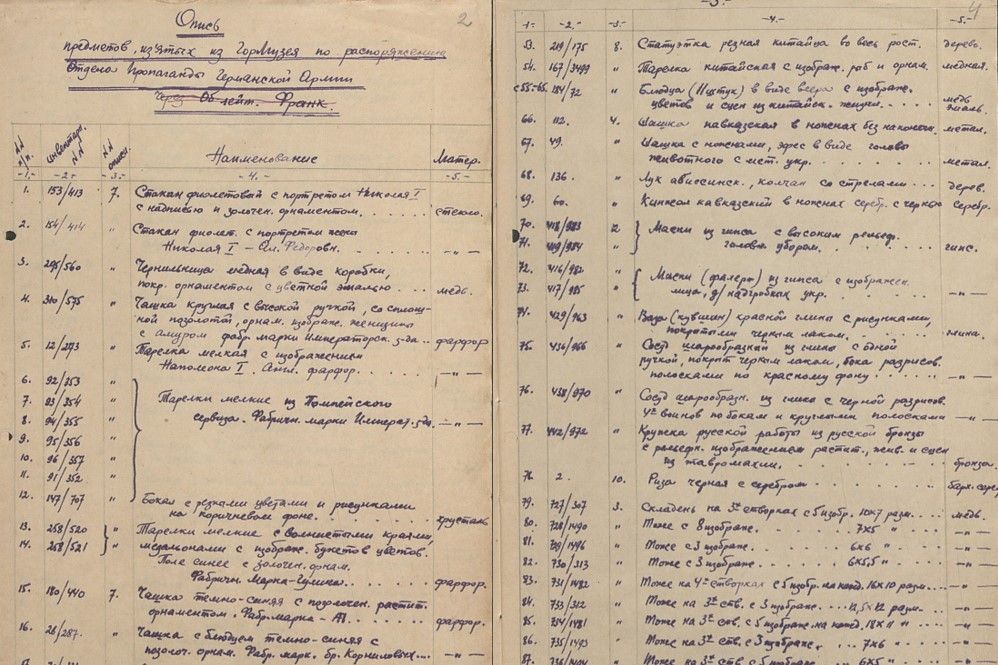 2
Опись
предметов, изъятых из ГорМузея по распоряжению
Отдела Пропаганды Германской Армии
через Об. лейт. Франк.
NN п/п. инвентарн. NN NN описи. Наименование Матер.
-1- -2- -3- -4- -5-
1. 153/413 7. Стакан фиолетовый с портретом Николая I
с надписью и золочен. орнаментом. стекло.
2. 154/414 " Стакан фиолет. с портретом жены
Николая I – Ал. Фёдоровн.
3. 295/560 " Чернильница медная в виде коробки,
покр. орнаментом с цветной эмалью медь.
4. 310/575 " Чашка круглая с высокой ручкой, со сплош-
ной позолотой, орнам. изображ. женщины
с амуром фабр. марки Императорск. з-да фарфор
5. 12/273 " Тарелка мелкая с изображением
Наполеона I. Англ. фарфор. —"—
6. 92/353 "
7. 93/354 " Тарелки мелкие из Помпейского
8. 94/355 " сервиза. Фабричн. марки Императ. з-да. —"—
9. 95/356 "
10. 96/357 "
11. 91/352 "
12. 147/707 " Бокал с резными цветами и рисунками
на коричневом фоне. хрусталь
13. 258/520 " Тарелки мелкие с волнистыми краями,
14. 258/521 " медальонами с изображ. букетов цветов.
Поле синее с золочен. орнам.
Фабричн. марка фарфор.
15. 180/440 7. Чашка темно-синяя с позолочен. растит.
орнаментом. Фабр. марка - А. фарфор.
16. 28/287. " Чашка с блюдцем темно-синяя с
позолоч. орнам. Фабр. марк. бр. Корниловых —"—
4
-3-
-1- -2- -3- -4- -5-
53. 219/175 8. Статуэтка резная китайца во весь рост. дерево.
54. 167/3499 " Тарелка китайская с изображ. рыб и орнам. медная.
с 55-65. 184/72 " Блюдца (11 штук) в виде веера с изображ.
цветов и сцен из китайск. жизни. медь эмаль.
66. 112. 4. Шашка кавказская в ножнах без наконечн. метал.
67. 49. " Шашка с ножнами, эфес в виде головы
животного с мет. укр. метал.
68. 136. " Лук абиссинск., колчан со стрелами дерев.
69. 60. " Кинжал кавказский в ножнах серебр. с чернью серебр.
70. 418/983 12 Маски из гипса с высоким рельеф.
71. 419/984 " головн. убором. гипс.
72. 416/982 " Маски (фалеры) из гипса с изображен.
73. 417/985 " лица, д/надгробных укр. —"—
74. 429/963 " Ваза (кувшин) красной глины с рисунками,
покрытыми черным лаком глина.
75. 436/966 " Сосуд шарообразный из глины с одной
ручкой, покрыт черным лаком, бока разрисов.
полосками по красному фону —"—
76. 438/970 " Сосуд шарообразн. из глины с черной разрисов.
4х воинов по бокам и круглыми полосками —"—
77. 442/972 " Кружка русской работы из русской бронзы
с рельефн. изображением растит., жив. и сцен
из тавромахии. бронза.
78. 2. 10. Риза черная с серебром барх. сереб.
79. 727/307 3. Складень на 3х створках с 5 изобр. 10×7 разм. медь.
80. 728/1490 " Тоже с 8 изображ. 7×5 " —"—
81. 729/1496 " Тоже с 3 изображ. 6×6 " —"—
82. 730/313 " Тоже с 3 изображ. 6×5,5 " —"—
83. 731/1482 " Тоже на 4х створках с 5 изобр. на кажд. 16×10 разм. —"—
84. 733/312 " Тоже на 3х ств. с 3 изображ. 12,5×12 разм. —"—
85. 734/1481 " Тоже на 3х ств. с 5 изображ. на кажд. 18×11 " —"—
86. 735/1493 " Тоже на 3х ств. с 3 изображ. 7×6 " —"—
87. " Тоже на 3х ств. с 5 изображ.